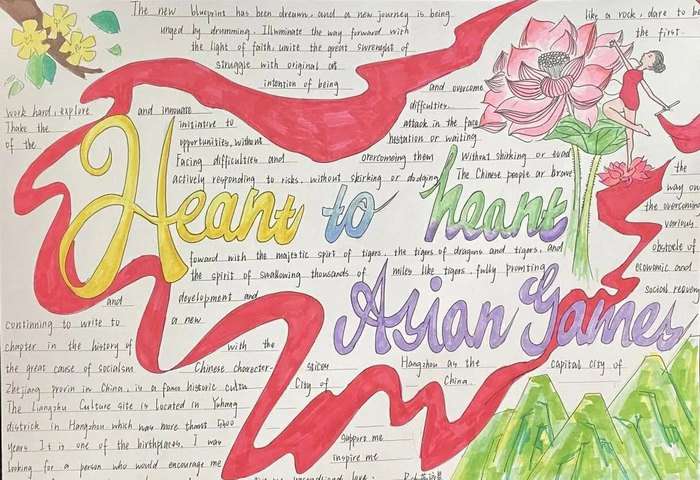 The new blueprint has been dream, and a new journey is being like a rock, dare to be
urged by drumming. Illuminate the way forward with the first.
the light of faith, write the great
struggle with original
intention of being and overcome
work hard, explore and innovate difficulties.
the initiative to attack in the face
of the opportunities, without or waiting
Facing difficulties and overcoming them Without shirking or
actively responding to risks, without shirking or dodging The Chinese people ar brave the
Heant to heant
way
the overcoming
various
toward with the majestic spirt of tigers, the tigers of dragons and tigers, and obstacle of
the spirit of swallowing thousands of miles like tigers, fully economic and
and development and social
Asian Games
continning to write to a new
chapter in the history of with the
the great cause of socialism Chinese character- Hangzhou as the capital city of
Zhejiang provin in China, is a City of China.
The Liangzhu Culture site is located in Yuhang
district in Hangzhou which was more than
years It is one of the birthplaces. I was support me
looking for a person who would encourage me inspire me